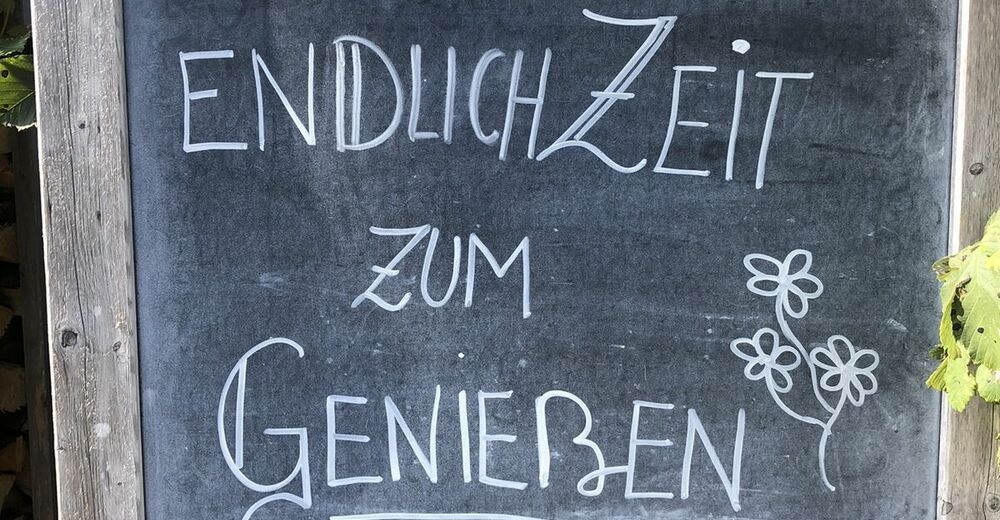 ENDLICH ZEiT
ZUM
GENiEßEN